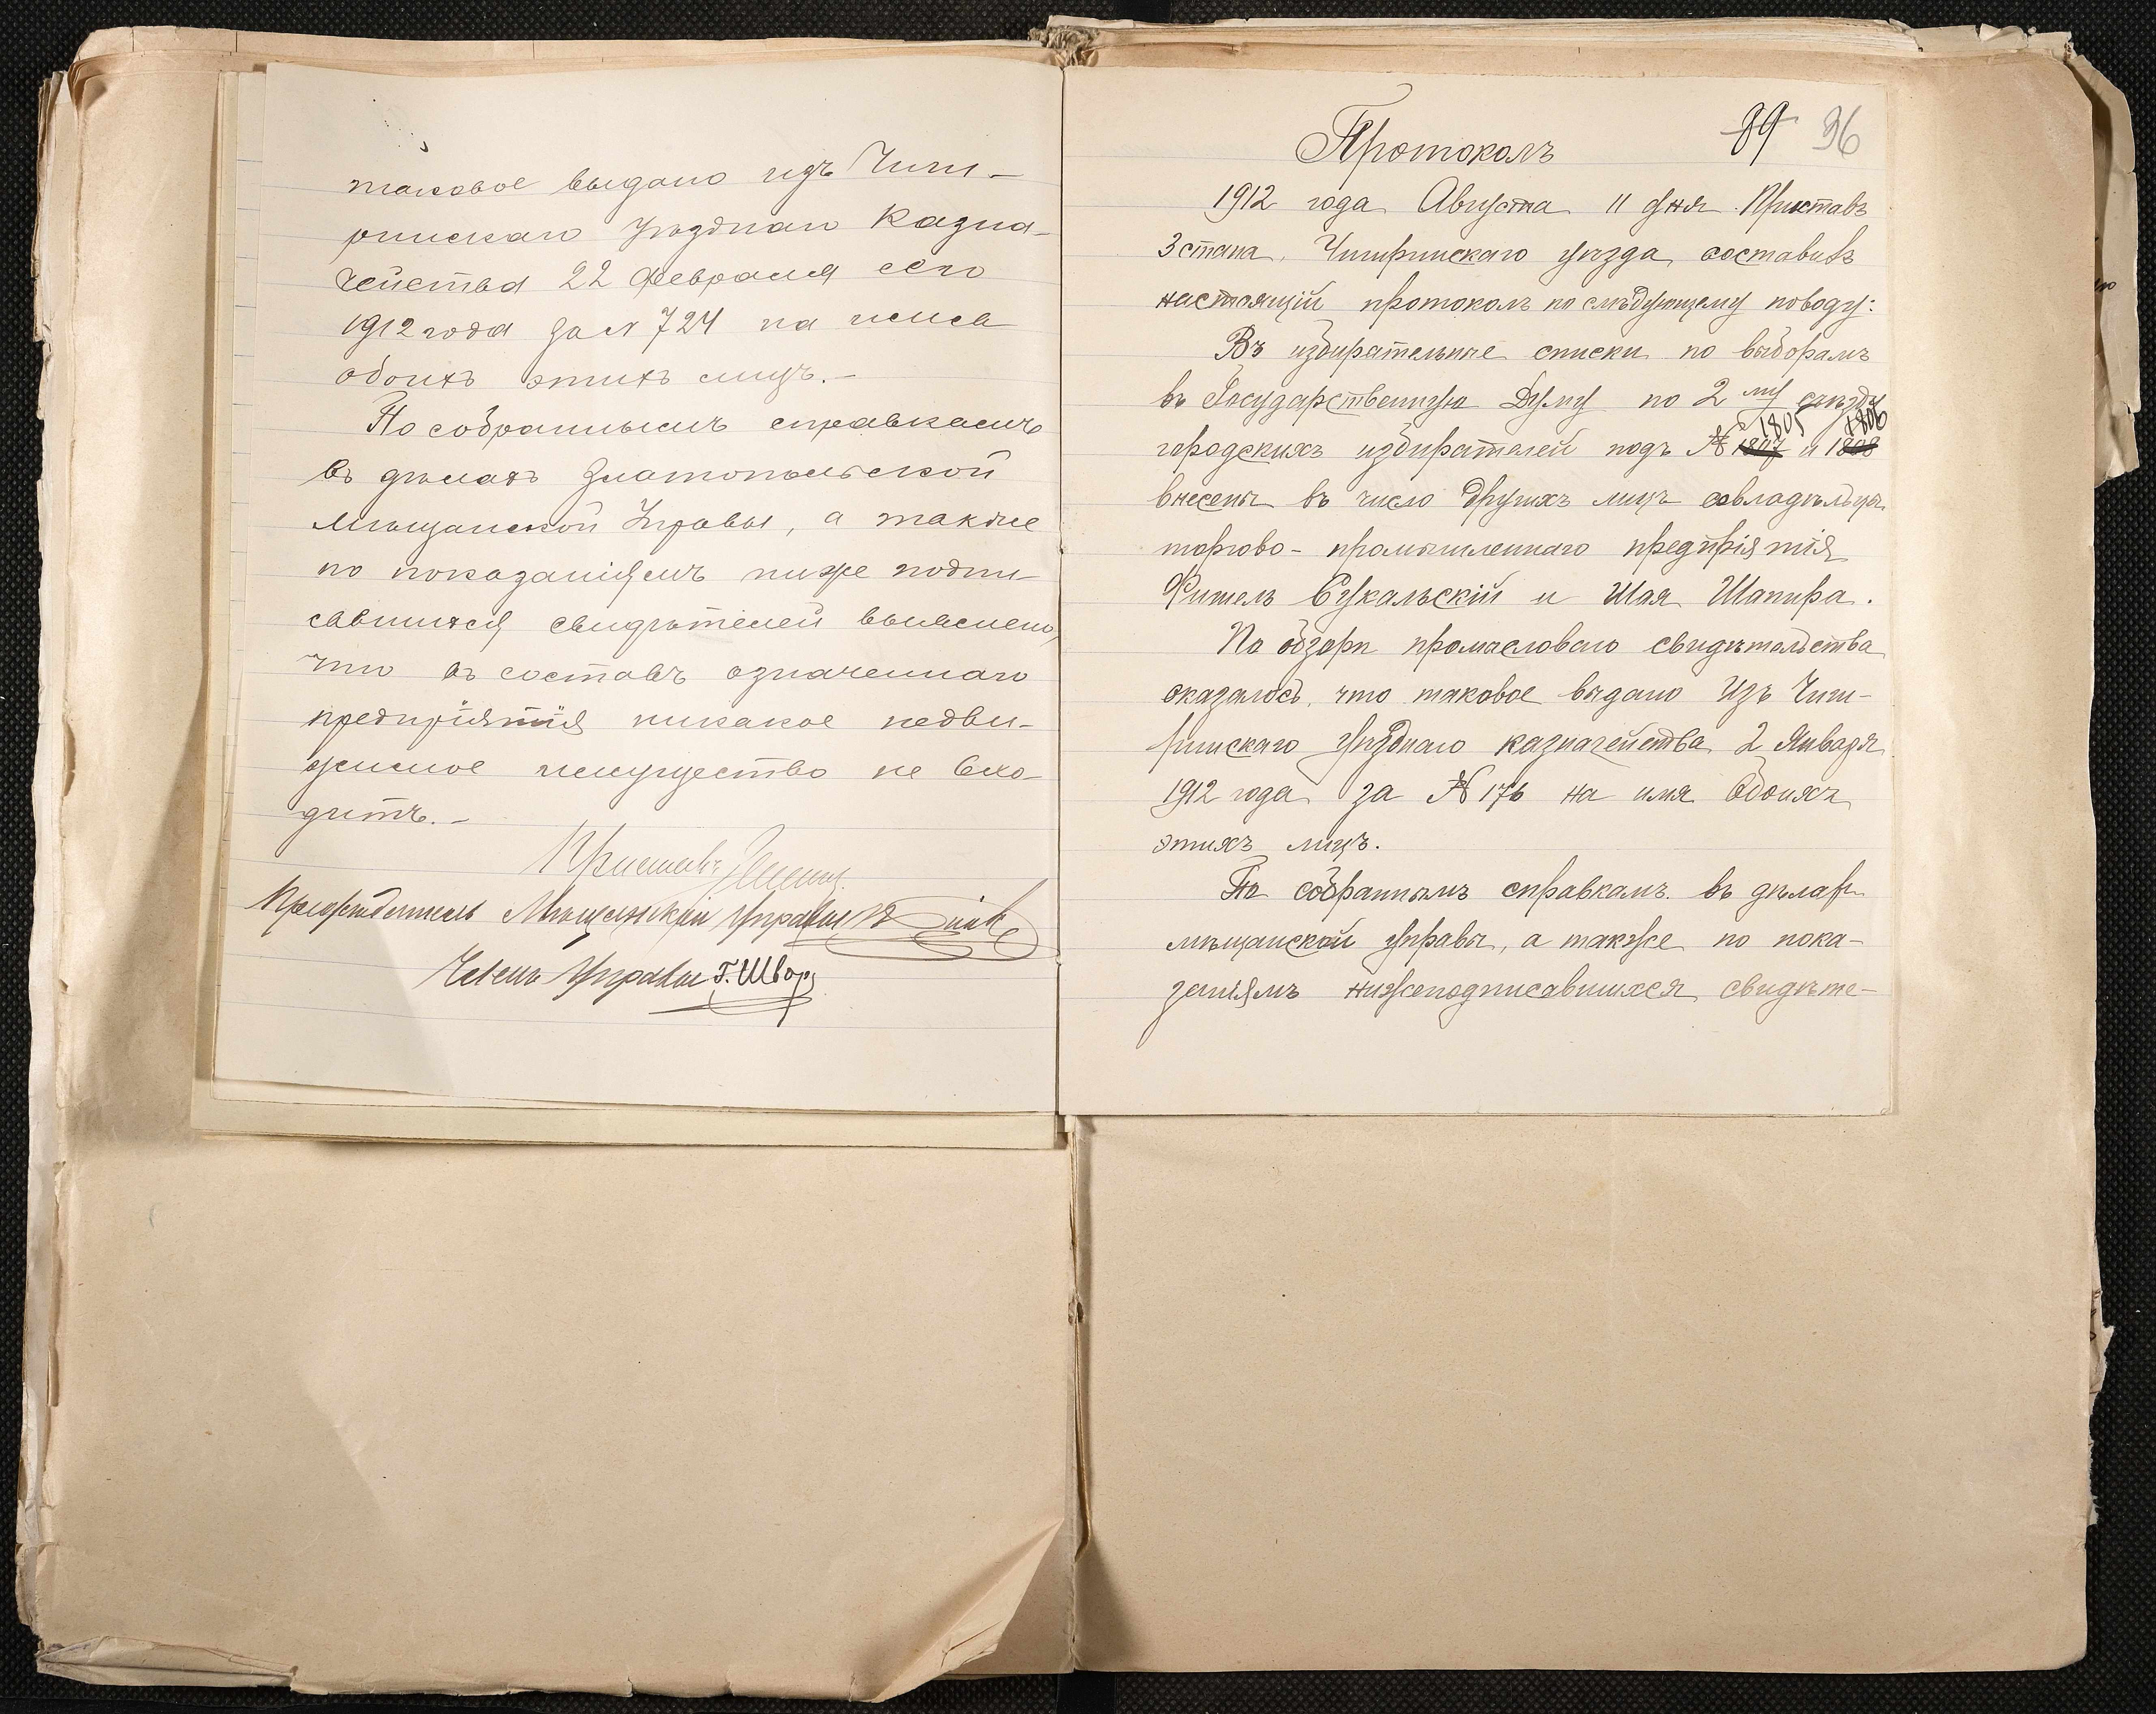 таковое выдано изъ Чиги-
ринскаго Уѣзднаго Казна-
чейства 22 февраля сего
1912 года за № 724 на имя
обоихъ этихъ лицъ.-
По собраннымъ справкамъ
въ дѣлахъ Златопольской
Мѣщанской Управы, а также
по показаніямъ ниже подпи-
савшихся свидѣтелей выяснено,
что въ составъ означеннаго
предпріятія никакое недви-
жимое имущество не вхо-
дитъ.-
Приставъ
Предсѣдатель Мѣщанской Управы
Членъ Управы Г. Шварц
89 96
Протоколъ
1912 года Августа 11 дня Приставъ
3 стана, Чигиринскаго уѣзда, составивъ
настоящій протоколъ по слѣдующему поводу:
Въ избирательные списки по выборамъ
въ Государственную Думу по 2 му съѣзду
1805 1806
городскихъ избирателей подъ № 1807 и 1808
внесены въ число другихъ лицъ совладѣльцы
торгово-промышленнаго предпріятія
Фишель Сукальскій и Шая Шапира.
По обзорѣ промысловаго свидѣтельства
оказалось, что таковое выдано изъ Чиги-
ринскаго уѣзднаго казначейства 2 Января
1912 года за № 176 на имя обоихъ
этихъ лицъ.
По собраннымъ справкамъ въ дѣлахъ
мѣщанской управы, а также по пока-
заніямъ нижеподписавшихся свидѣте-